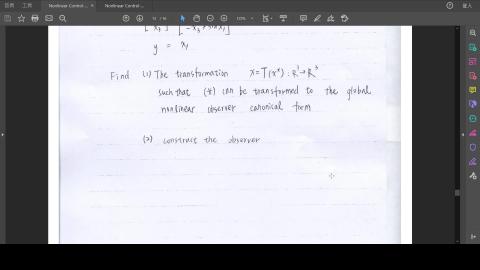 主页 工具 Nonlinear Control ... × Nonlinear Control ... × 登入
y = x₁
Find (1) The transformation x = T(x*) : R³→R³
such that (*) can be transformed to the global
nonlinear observer canonical form
(2) construct the observer